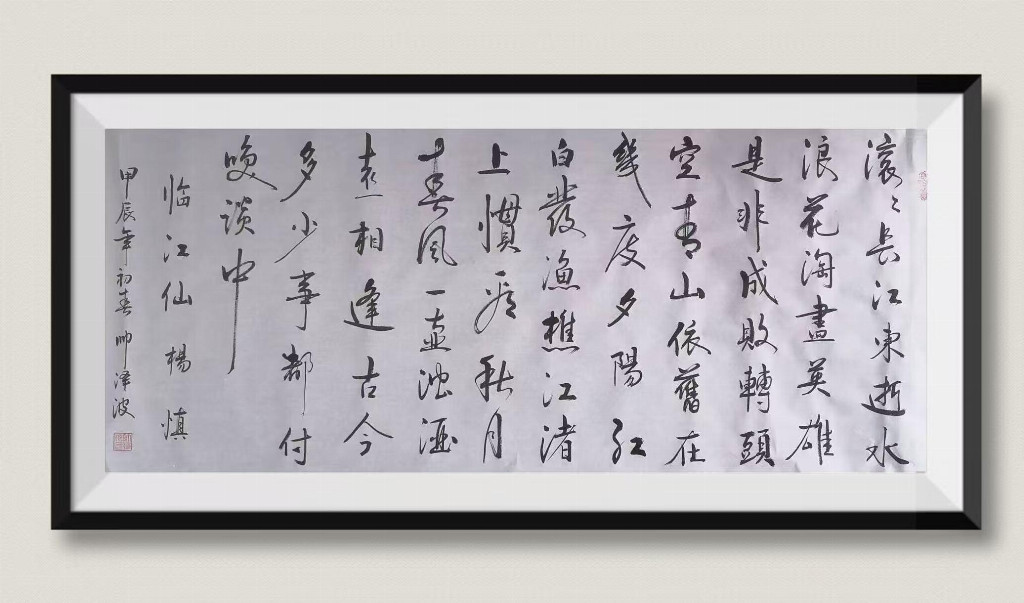 滚々長江東逝水
浪花淘盡英雄
是非成敗轉頭
空青山依舊在
幾度夕陽紅
白發漁樵江渚
上慣看秋月
春风一壶浊酒
喜相逢古今
多少事都付
笑談中
临江仙 楊慎
甲辰年初春 帅泽波